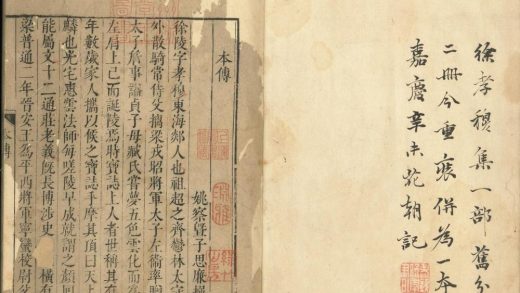 徐孝穆集一部舊分
二冊今重併為一本
嘉慶辛未花朝記
本傳
姚察曁子思廉撰
徐陵字孝穆東海郯人也祖超之齊鬱林太守
外散騎常侍父摛梁戎昭將軍太子左衛率
太子詹事諡貞子母臧氏嘗夢五色雲化而為
左肩上已而誕陵焉時寶誌上人者世稱其有
年數歲家人攜以候之寶誌手摩其頂曰天
麟也光宅惠雲法師每嗟陵早成就謂之顏回
能屬文十二通莊老義旣長博涉史 橫有
梁普通二年晉安王為平西將軍寧蠻校尉父
本傳